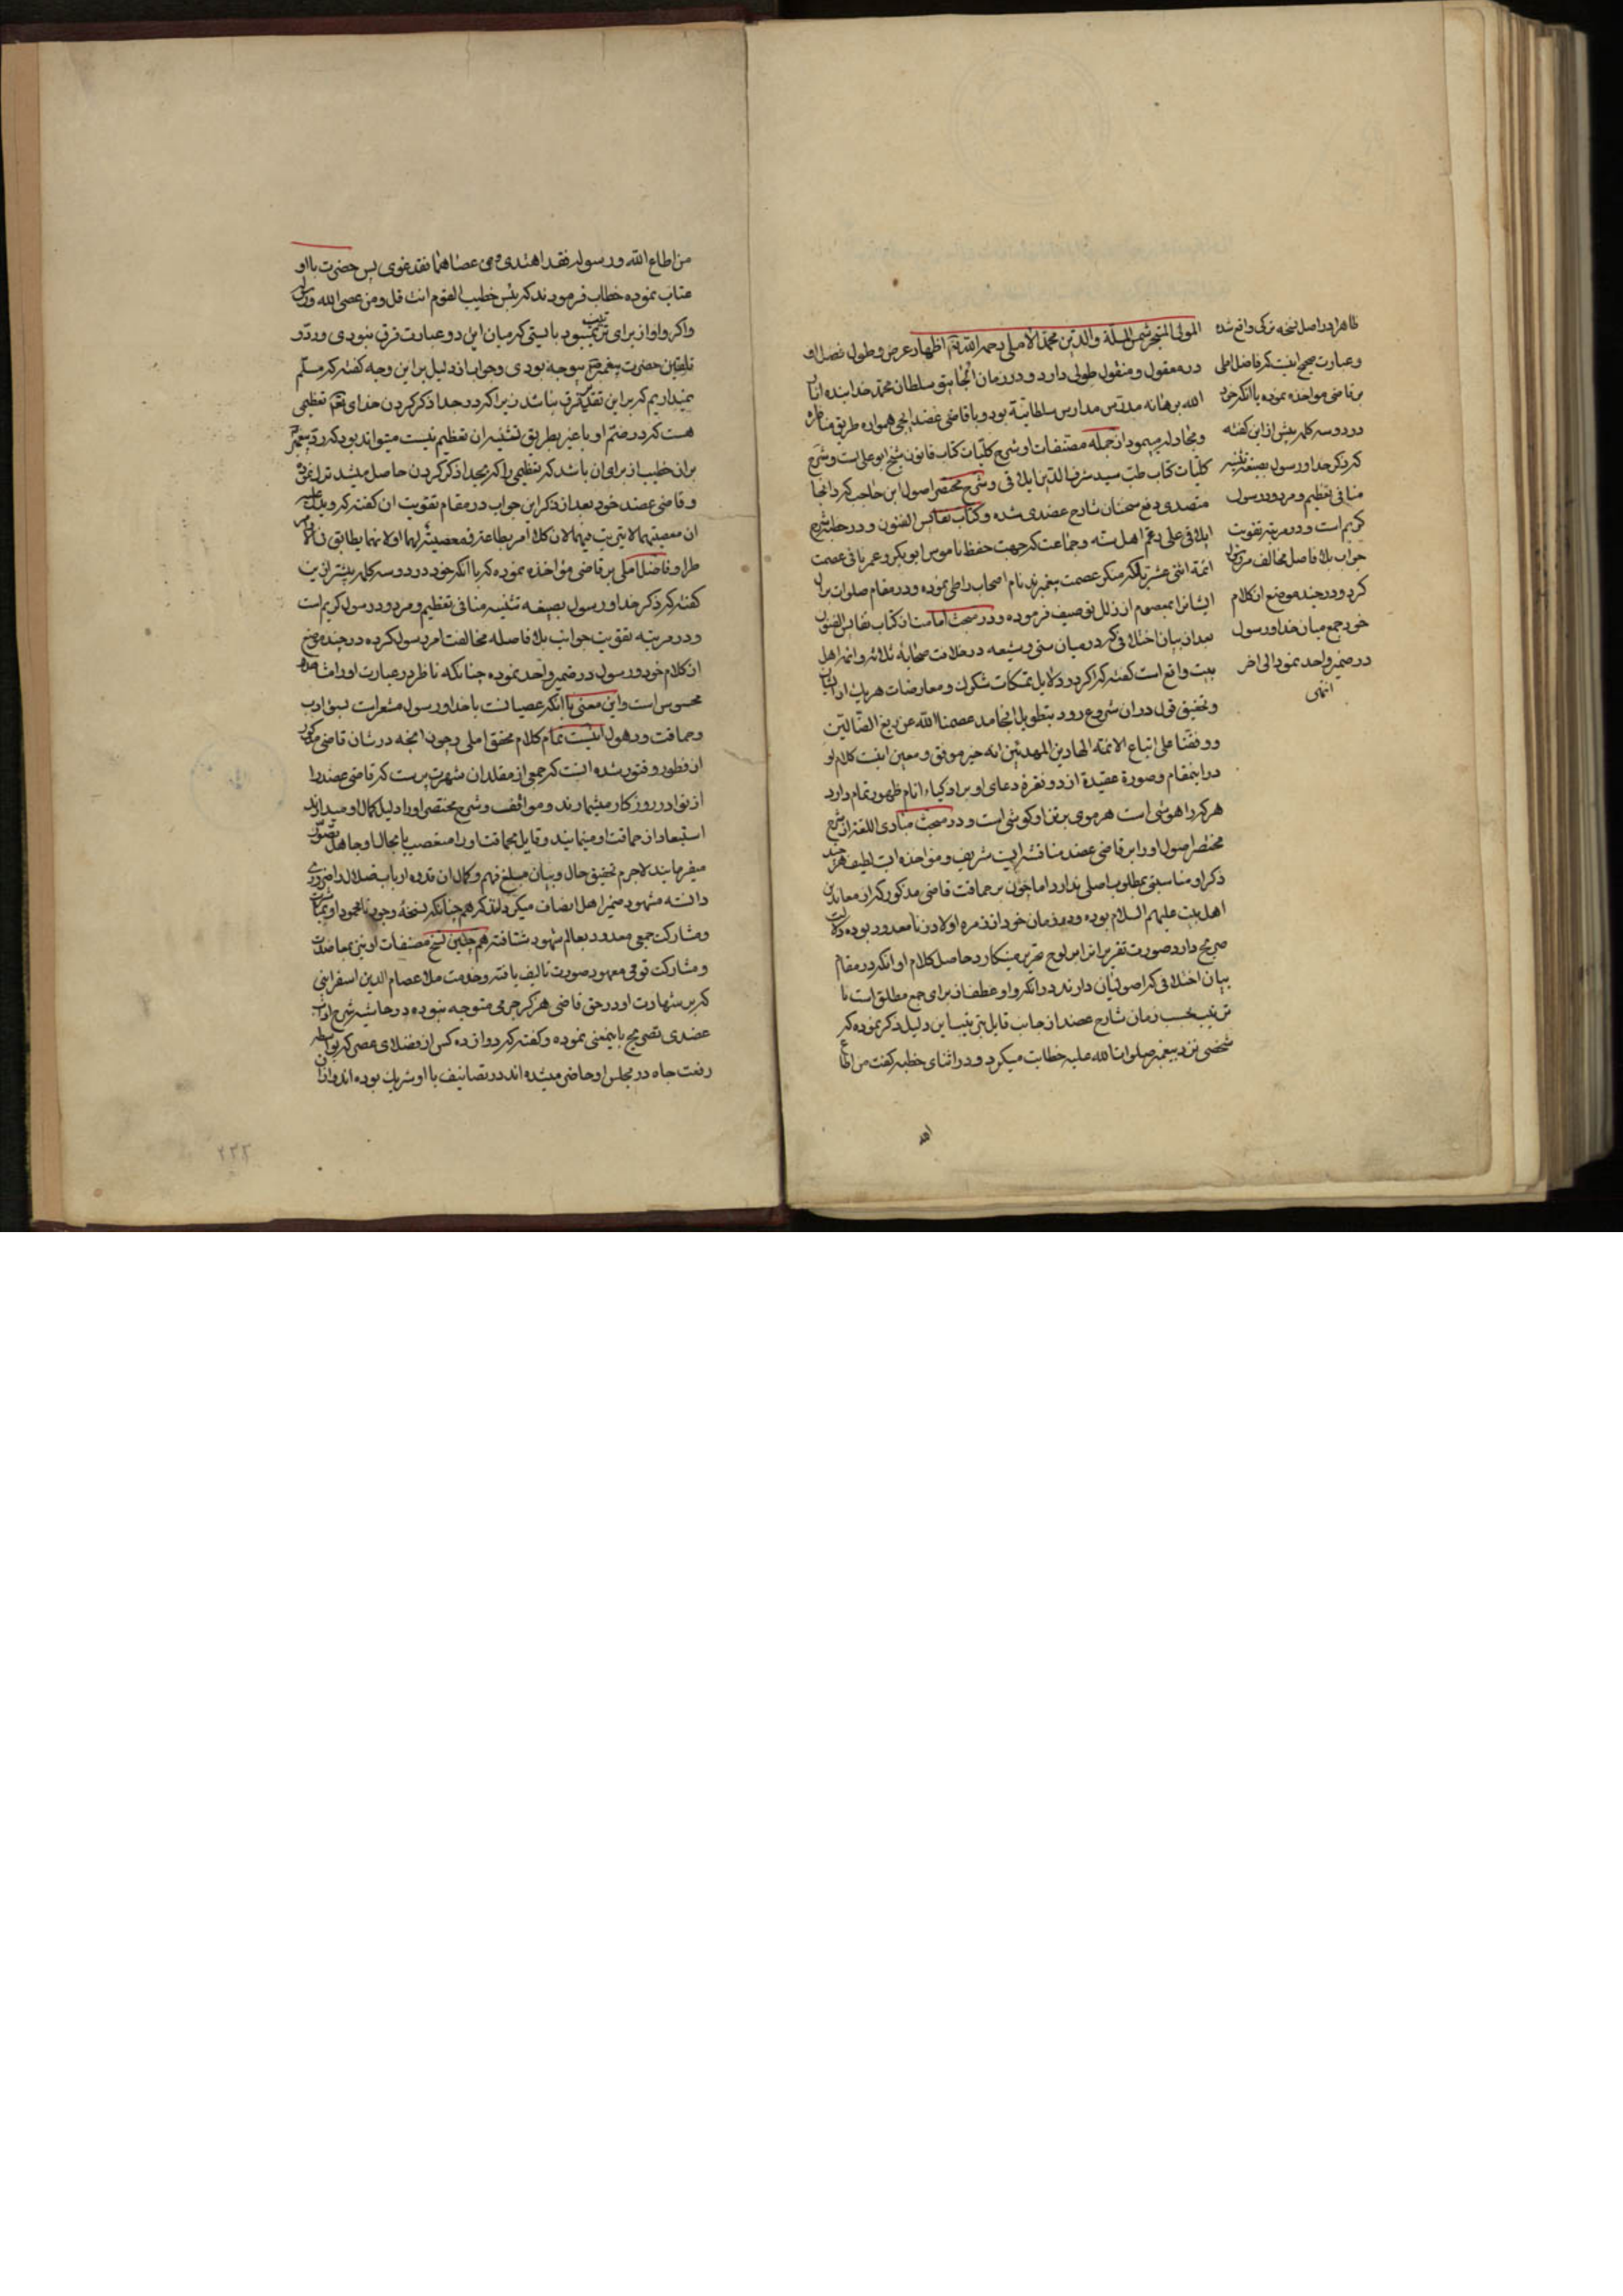 المولی المتبحر شمس الملة والدین محمد الاملی رحمه الله تعالی اظهار عرض و طول فضل او
در معقول و منقول طولی دارد و در زمان الجایتو سلطان محمد خدابنده انار
الله برهانه مدرس مدارس سلطانیة بود و با قاضی عضد ایجی همواره طریق مناظره
و مجادله میپمود از جمله مصنفات او شرح کلیات کتاب قانون شیخ ابو علی است و شرح
کلیات کتاب طب سید شرف الدین ایلاقی و شرح مختصر اصول ابن حاجب که در انجا
متصدی دفع سخنان شارح عضدی شده و کتاب نفایس الفنون و در خطبه شرح
ایلاقی علی رغم اهل سنه و جماعت که جهت حفظ ناموس ابو بکر و عمر با نی عصمت
ائمة اثنی عشر بلکه منکر عصمت پیغمبرند نام اصحاب را طی نموده و در مقام صلوات بر ال
ایشانرا بمعصوم از زلل توصیف فرموده و در مبحث امامت از کتاب نفایس الفنون
بعد از بیان اختلافی که در میان سنی و شیعه در خلافت صحابهٔ ثلاثه و ائمه اهل
بیت واقع است گفته که اگر در دلایل تمسکات شکوک و معارضات هر یک از ایشان
و تحقیق قول در ان شروع رود بتطویل انجامد عصمنا الله عن زیغ الضالین
و وفقنا علی اتباع الائمة الهادین المهدیین انه خیر موفق و معین اینست کلام او
در اینمقام و صورة عقیدة از دو فقرهٔ دعای او بر اذکیاء انام ظهور تمام دارد
هر کرا هوشی است هر موی بر تن او گوشی است و در مبحث مبادی اللغة از شرح
مختصر اصول او را بر قاضی عضد مناقشه ایست شریف و مؤاخذه ایست لطیف هر چند
ذکر او مناسبتی بمطلوب اصلی ندارد اما چون بر حماقت قاضی مذکور که از معاندین
اهل بیت علیهم السلام بوده و در زمان خود از زمره اولاد زنا معدود بوده دلالت
صریح دارد صورت تقریر انرا بر لوح تحریر مینگارد حاصل کلام او انکه در مقام
بیان اختلافی که اصولیان دارند در انکه واو عطف از برای جمع مطلق است یا
ترتیب بحسب زمان شارح عضد از جانب قایل بترتیب این دلیل ذکر نموده که
شخصی نزد پیغمبر صلوات الله علیه خطابت میکرد و در اثنای خطبه گفت من اطاع
الله
ظاهرا در اصل نسخه ترکی واقع شده
و عبارت صحیح اینست که فاضل املی
بر قاضی مواخذه نموده با انکه خود
در دو سه کلمه پیش از این گفته
که ذکر خدا و رسول بصیغه تثنیه
منافی تعظیم و مردود رسول
کریم است و در مرتبه تقویت
جواب بلا فاصله مخالف مر رسول
کرد و در چند موضع از کلام
خود جمع میان خدا و رسول
در ضمیر واحد نمود الی اخر
انتهی
من اطاع الله و رسوله فقد اهتدی و من عصاهما فقد غوی پس حضرت با او
عتاب نموده خطاب فرمودند که بئس خطیب القوم انت قل و من عصی الله و رسوله
و اگر واو از برای ترتیب نمیبود بایستی که میان این دو عبارت فرق نبودی و رد و
تلقین حضرت پیغمبر بیوجه بودی و جواب از دلیل بر این وجه گفته که مسلم
نمیداریم که بر این تقدیر فرق نباشد زیرا که در جدا ذکر کردن خدای تعالی تعظیمی
هست که در ضم او با غیر بطریق تثنیه ان تعظیم نیست میتواند بود که رد پیغمبر
بر ان خطیب از برای ان باشد که تعظیمی را که بجدا ذکر کردن حاصل میشد ترک نمود
و قاضی عضد خود بعد از ذکر این جواب در مقام تقویت ان گفته که و یدل علیه
ان معصیتهما لا ترتیب فیهما لان کلا امر بطاعته فمعصیته لهما اولانهما یطابق
فاضل املی بر قاضی مؤاخذه نموده که با انکه خود در دو سه کلمه پیشتر از این
گفته که ذکر خدا و رسول بصیغه تثنیه منافی تعظیم و مردود رسول کریم است
و در مرتبه تقویت جواب بلا فاصله مخالفت امر رسول کرده در چند موضع
از کلام خود و رسول در ضمیر واحد نموده چنانکه ناظر در عبارت او را مشاهده
محسوس است و این معنی با انکه عصیانست با خدا و رسول مشعر است بسوء ادب
و حماقت و ذهول اینست تمام کلام محقق املی و چون انچه در شان قاضی مذکور
از فطور و فتور شده انست که جمعی از مقلدان شهرت پرست که قاضی عضد را
از نوادر روزکار میشمارند و مواقف و شرح مختصر او را دلیل کمال او میدانند
استبعاد از حماقت او مینمایند و قایل بحماقت او را متعصب یا بحال او جاهل تصور
میفرمایند لاجرم تحقیق حال و بیان مبلغ فهم و کمال ان قدوه ارباب ضلال را ضروری
دانسته مشهود ضمیر اهل انصاف میکرداند که همچنانکه نسخهٔ وجود نامحمود او بمباشرت
و مشارکت جمعی معدود بعالم شهود شتافته همچنین نسخ مصنفات او نیز بمعاضدت
و مشارکت قومی معهود صورت تالیف یافته و خدمت ملا عصام الدین اسفراینی
که بر شهادت او در حق قاضی هرگز جرحی متوجه نبوده در حاشیه شرح اداب
عضدی تصریح باینمعنی نموده و گفته که دوازده کس از فضلای عصر که بواسطه
رفعت جاه در مجلس او حاضر میشده اند در تصانیف با او شریک بوده اند و از ان
۲۳۳